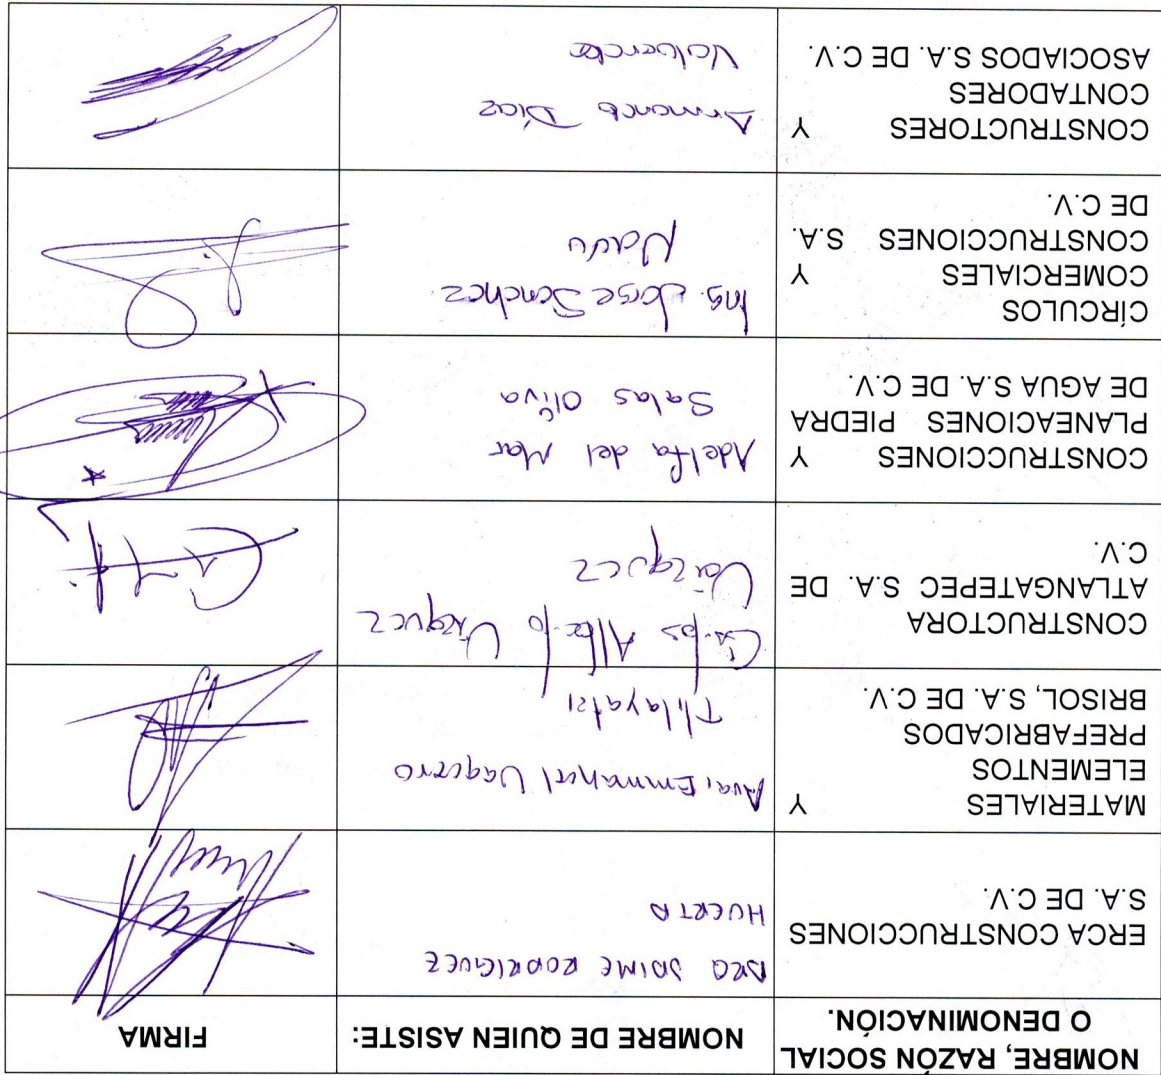 NOMBRE, RAZÓN SOCIAL
O DENOMINACIÓN.
NOMBRE DE QUIEN ASISTE:
FIRMA
ERCA CONSTRUCCIONES
S.A. DE C.V.
ARQ JAIME RODRIGUEZ
HUERTA
MATERIALES Y
ELEMENTOS
PREFABRICADOS
BRISOL, S.A. DE C.V.
Emmanuel Vaquero
Tlilayatzi
CONSTRUCTORA
ATLANGATEPEC S.A. DE
C.V.
Carlos Alberto Vázquez
Vázquez
CONSTRUCCIONES Y
PLANEACIONES PIEDRA
DE AGUA S.A. DE C.V.
Adelfa del Mar
Salas Oliva
CÍRCULOS
COMERCIALES Y
CONSTRUCCIONES S.A.
DE C.V.
Ing. Jorge Sanchez
CONSTRUCTORES Y
CONTADORES
ASOCIADOS S.A. DE C.V.
Armando Díaz
Valverde